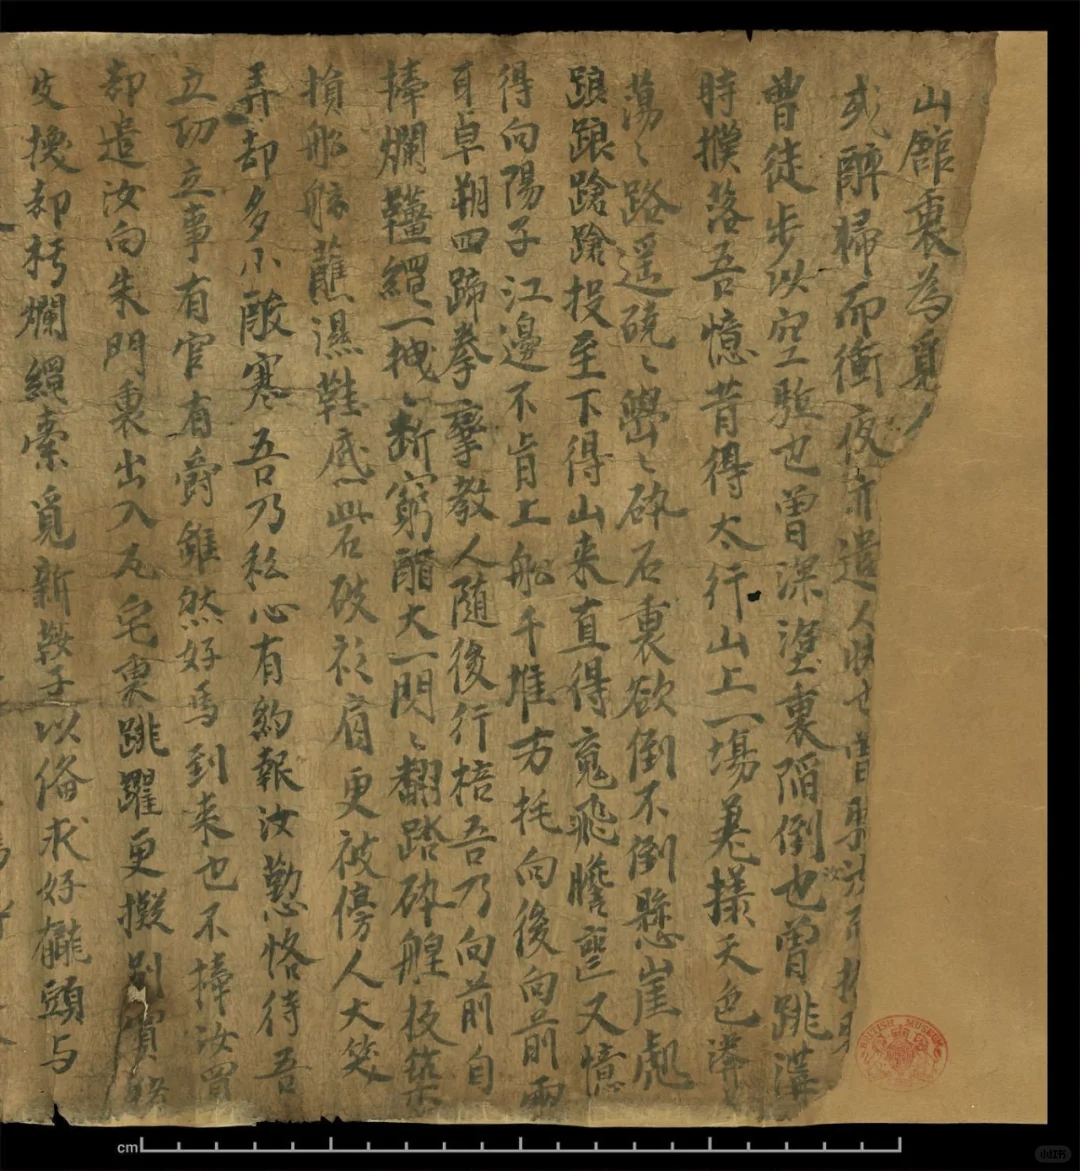 山館裏為覓
或醉歸而衝夜亦遣人
曾徒步以空駈也曾深埿裏陷倒也曾跳溝
時撲落吾憶昔得太行山上一場差樣天色渾
蕩〻路遥磽〻巒〻碎石裏欲倒不倒懸崖處
踉踉蹌蹌投至下得山来直得魂飛膽喪又憶
得向陽子江邊不肯上船千堆万托向後向前兩
耳卓朔四蹄拳攣教人隨後行棓吾乃向前自
捧爛韁繩一拽〻断窮醋大一閃〻翻踏碎艎板築
損船舷蘸濕鞋底砦破衫肩更被傍人大笑
弄却多小酸寒吾乃私心有約報汝懃恪待吾
立功立事有官有爵雖然好馬到来也不捧汝買
却遣汝向朱門裏出入瓦宅裏跳躍更擬別買
皮換却朽爛繩索覓新鞍子以偹求好籠頭与
BRITISH MUSEUM
cm